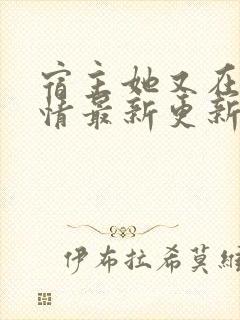 宿主她又在
情最新更新
伊布拉希莫维